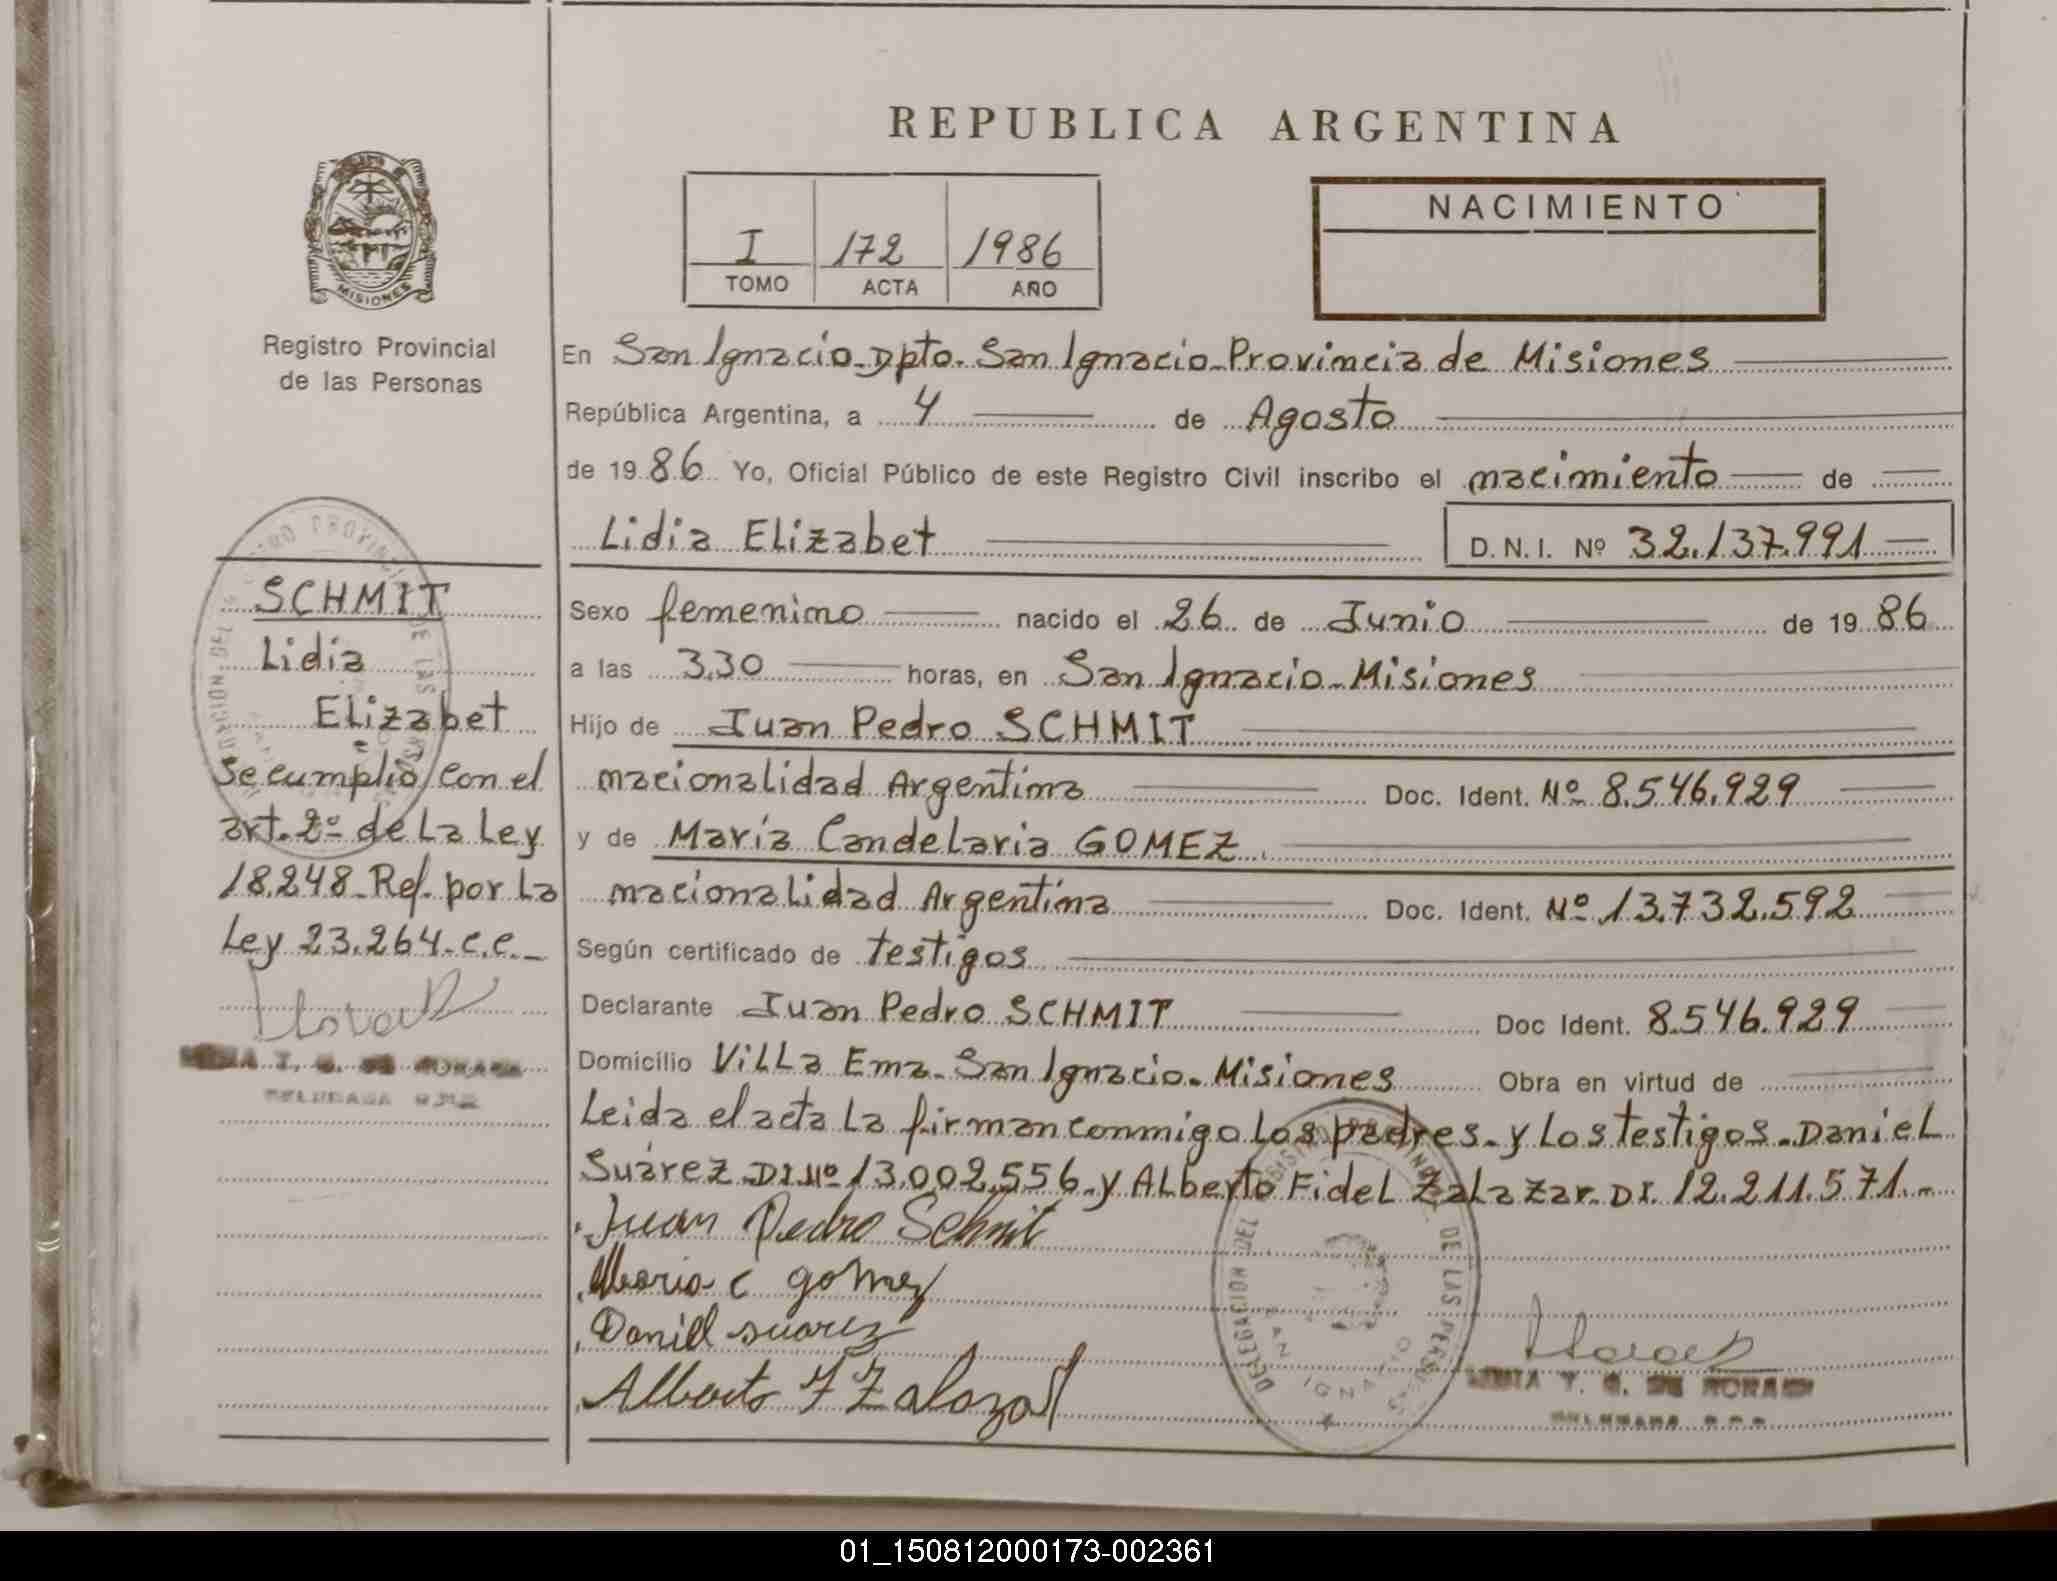 REPUBLICA ARGENTINA
MISIONES
Registro Provincial
de las Personas
I 172 1986
TOMO ACTA AÑO
NACIMIENTO
En San Ignacio-Dpto. San Ignacio-Provincia de Misiones
República Argentina, a 4 de Agosto
de 1986 Yo, Oficial Público de este Registro Civil inscribo el nacimiento de
Lidia Elizabet D.N.I. Nº 32.137.991
SCHMIT
Lidia
Elizabet
Se cumplio con el
art. 2º de La Ley
18.248-Ref. por La
Ley 23.264.c.c.-
Sexo femenino nacido el 26 de Junio de 1986
a las 3,30 horas, en San Ignacio-Misiones
Hijo de Juan Pedro SCHMIT
nacionalidad Argentina Doc. Ident. Nº 8.546.929
y de María Candelaria GOMEZ.
nacionalidad Argentina Doc. Ident. Nº 13.732.592
Según certificado de testigos
Declarante Juan Pedro SCHMIT Doc Ident. 8.546.929
Domicilio Villa Ema-San Ignacio-Misiones Obra en virtud de
Leida el acta La firman conmigo Los padres-y Los testigos-Daniel
Suárez-DI.Nº 13.002.556-y Alberto Fidel Zalazar-DI. 12.211.571.-
Juan Pedro Schmit
Maria C Gomez
Daniel suarez
Alberto F Zalazar
DELEGACION DEL REGISTRO PROVINCIAL DE LAS PERSONAS
SAN IGNACIO
01_150812000173-002361